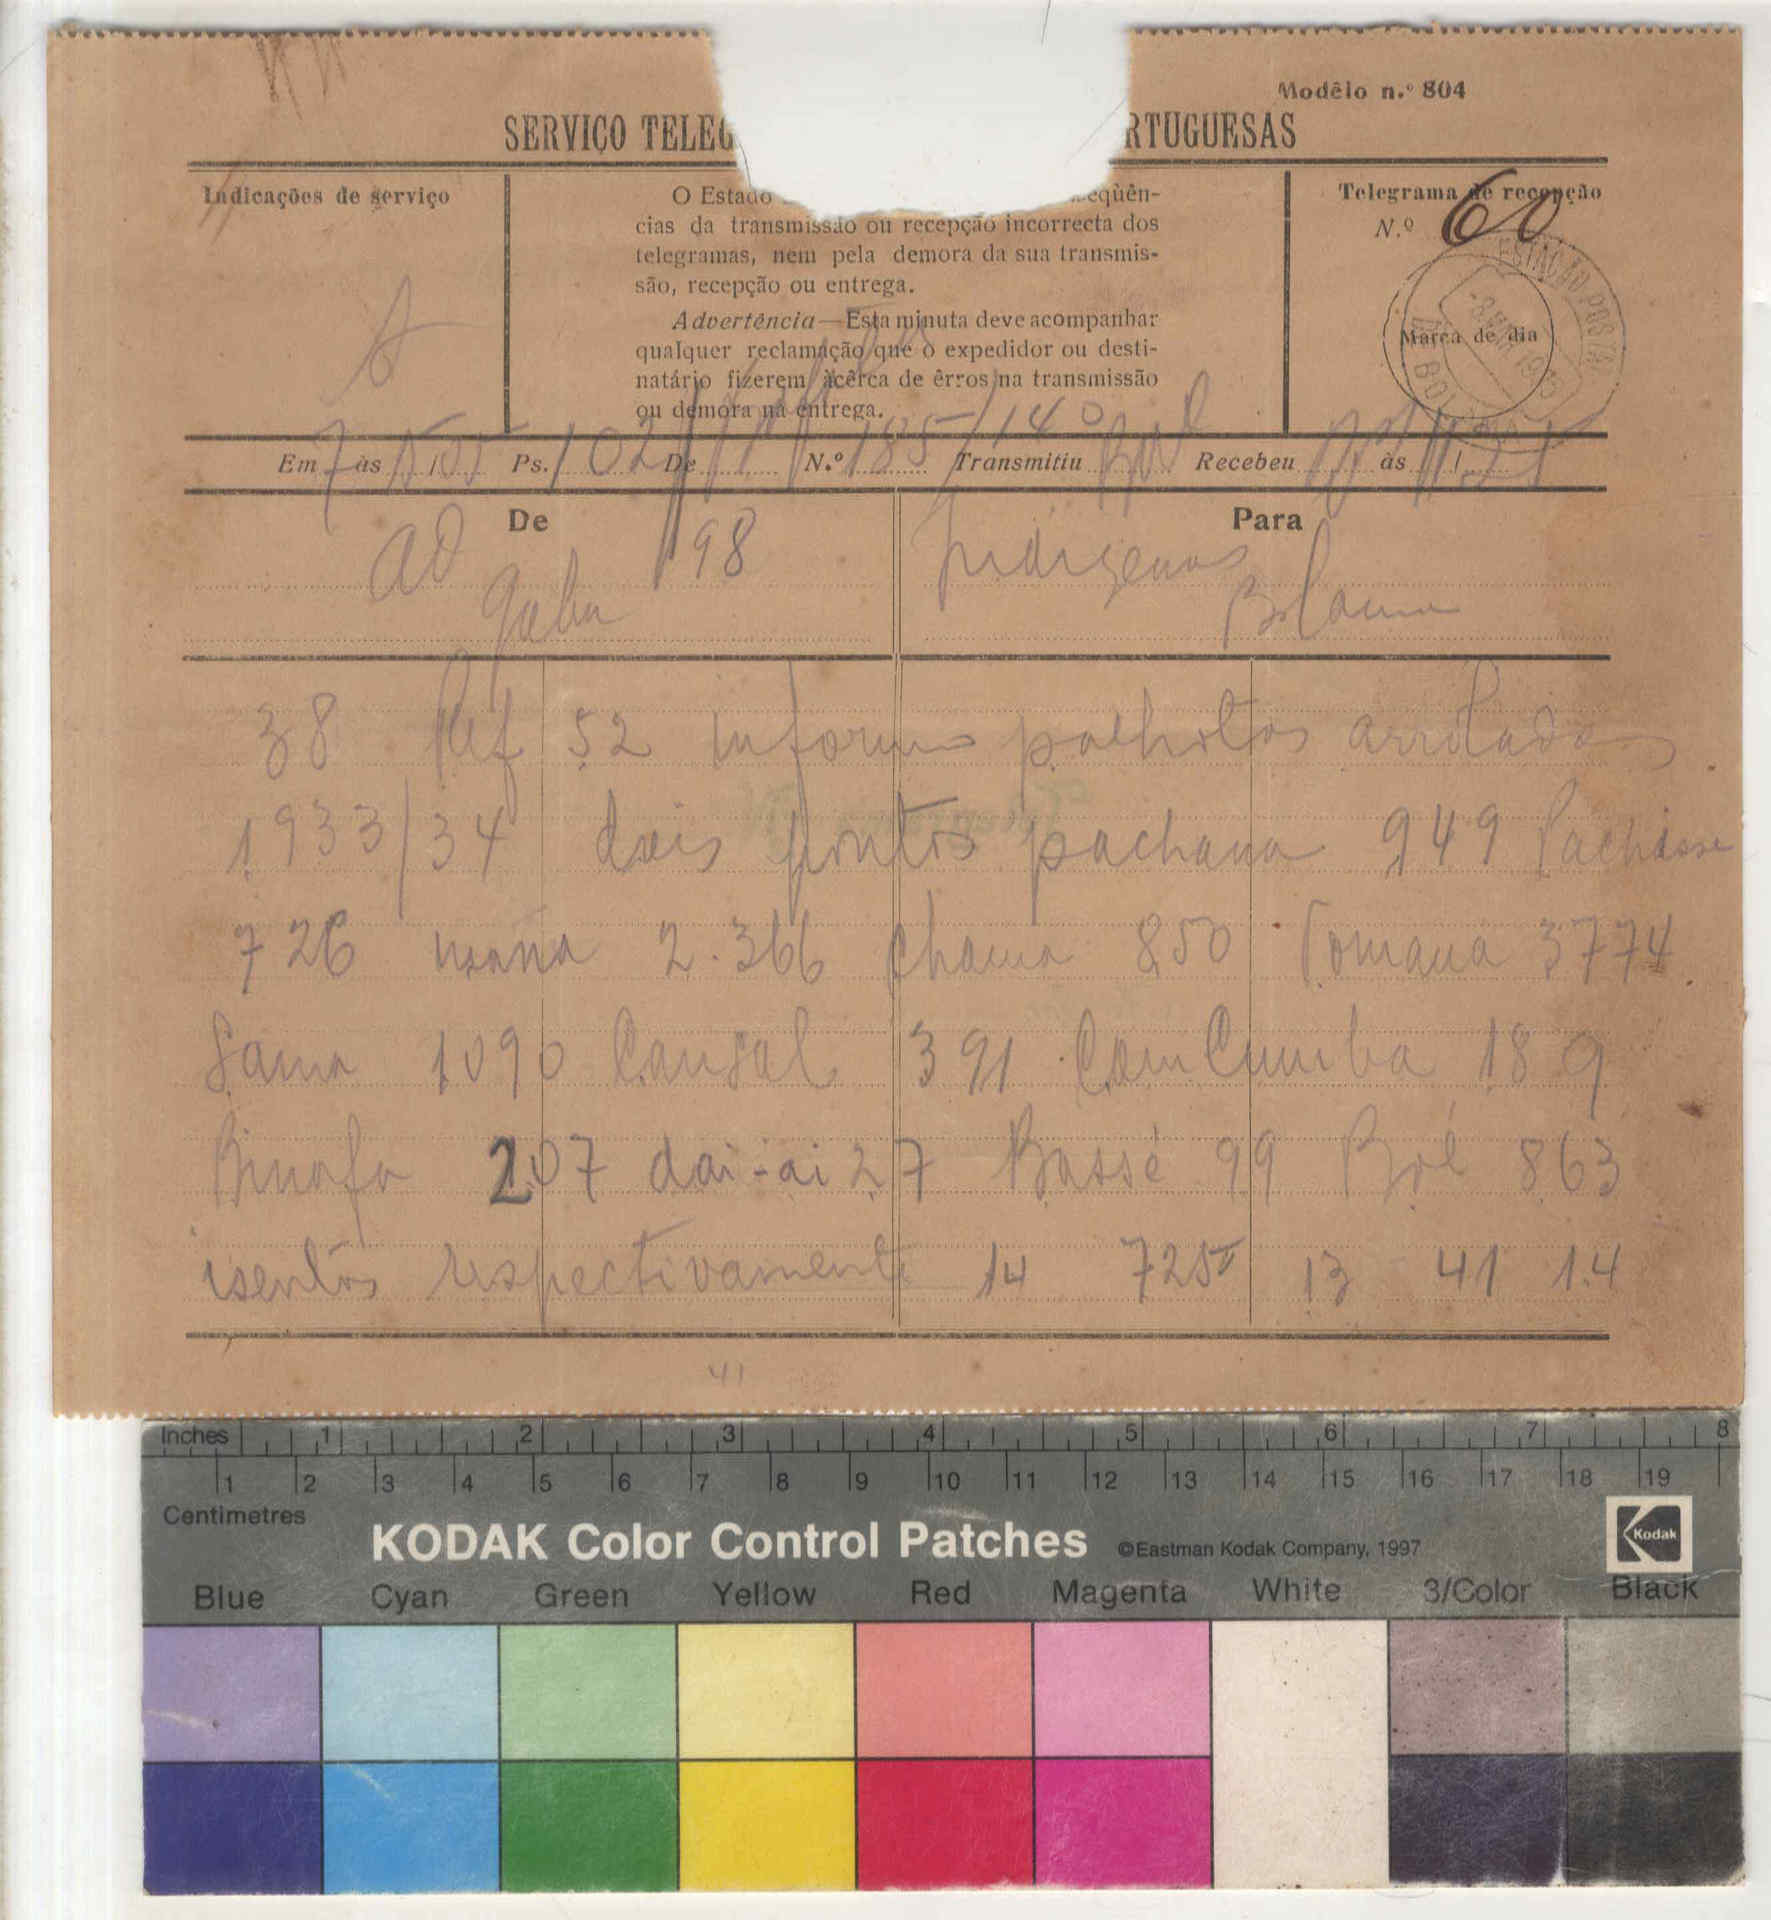 Modêlo n.º 804
SERVIÇO TELEG RTUGUESAS
Indicações de serviço
O Estado seqüên-
cias da transmissão ou recepção incorrecta dos
telegramas, nem pela demora da sua transmis-
são, recepção ou entrega.
Advertência—Esta minuta deve acompanhar
qualquer reclamação que o expedidor ou desti-
natário fizerem àcêrca de êrros na transmissão
ou demora na entrega.
Telegrama de recepção
N.º 60
ESTAÇÃO POSTAL
Marca de dia
Em 7 às Ps. 102 De N.º 185/14 Transmitiu Recebeu às
De
98
Para
Indigenas
Bolama
38 Ref 52 informo palhotas arroladas
1933/34 dois pontos pachana 949 Pachisse
726 2.366 chama 850 Tomana 3774
Sama 1090 Cansal 391 CamCumba 189
Binafa 207 dai-ai 27 Bassé 99 Boé 863
isentos respectivamente 14 725 13 41 14
41
Inches 1 2 3 4 5 6 7 8
1 2 3 4 5 6 7 8 9 10 11 12 13 14 15 16 17 18 19
Centimetres
KODAK Color Control Patches ©Eastman Kodak Company, 1997 Kodak
Blue Cyan Green Yellow Red Magenta White 3/Color Black